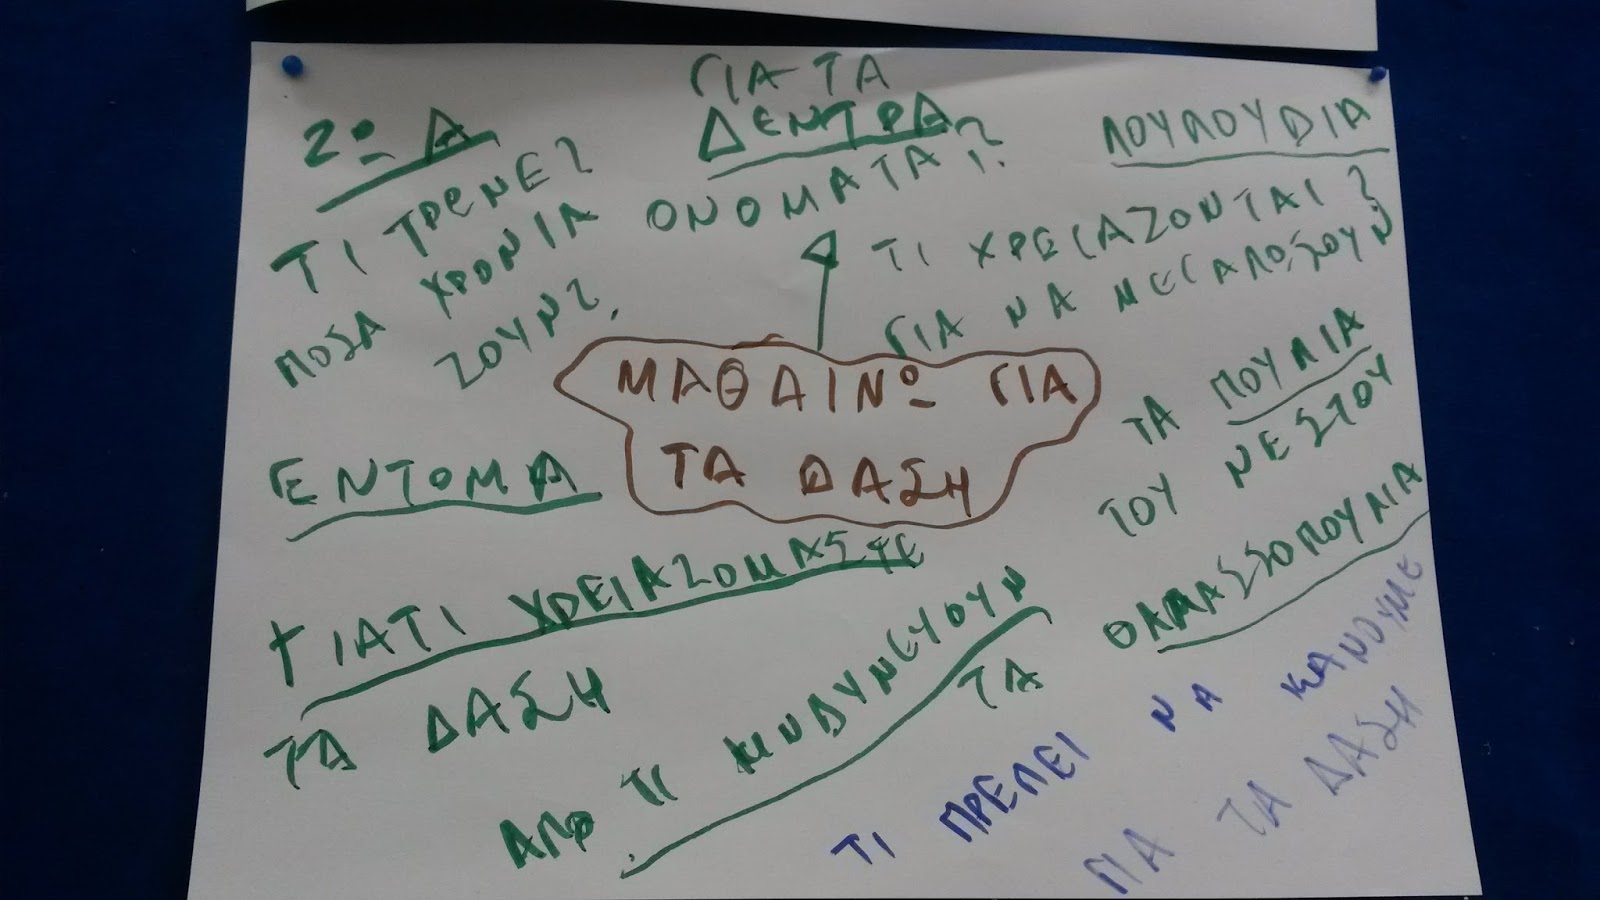 2º Α
ΓΙΑ ΤΑ
ΔΕΝΤΡΑ
ΛΟΥΛΟΥΔΙΑ
ΤΙ ΤΡΩΝΕ?
ΟΝΟΜΑΤΑ?
ΠΟΣΑ ΧΡΟΝΙΑ
ΖΟΥΝ?
ΤΙ ΧΡΕΙΑΖΟΝΤΑΙ?
ΓΙΑ ΝΑ ΜΕΓΑΛΩΣΟΥΝ
ΜΑΘΑΙΝΩ ΓΙΑ
ΤΑ ΔΑΣΗ
ΤΑ ΠΟΥΛΙΑ
ΤΟΥ ΝΕΣΤΟΥ
ΕΝΤΟΜΑ
ΤΑ ΘΑΛΑΣΣΟΠΟΥΛΙΑ
ΓΙΑΤΙ ΧΡΕΙΑΖΟΜΑΣΤΕ
ΤΑ ΔΑΣΗ
ΑΠΟ ΤΙ ΚΙΝΔΥΝΕΥΟΥΝ
ΤΙ ΠΡΕΠΕΙ ΝΑ ΚΑΝΟΥΜΕ
ΓΙΑ ΤΑ ΔΑΣΗ